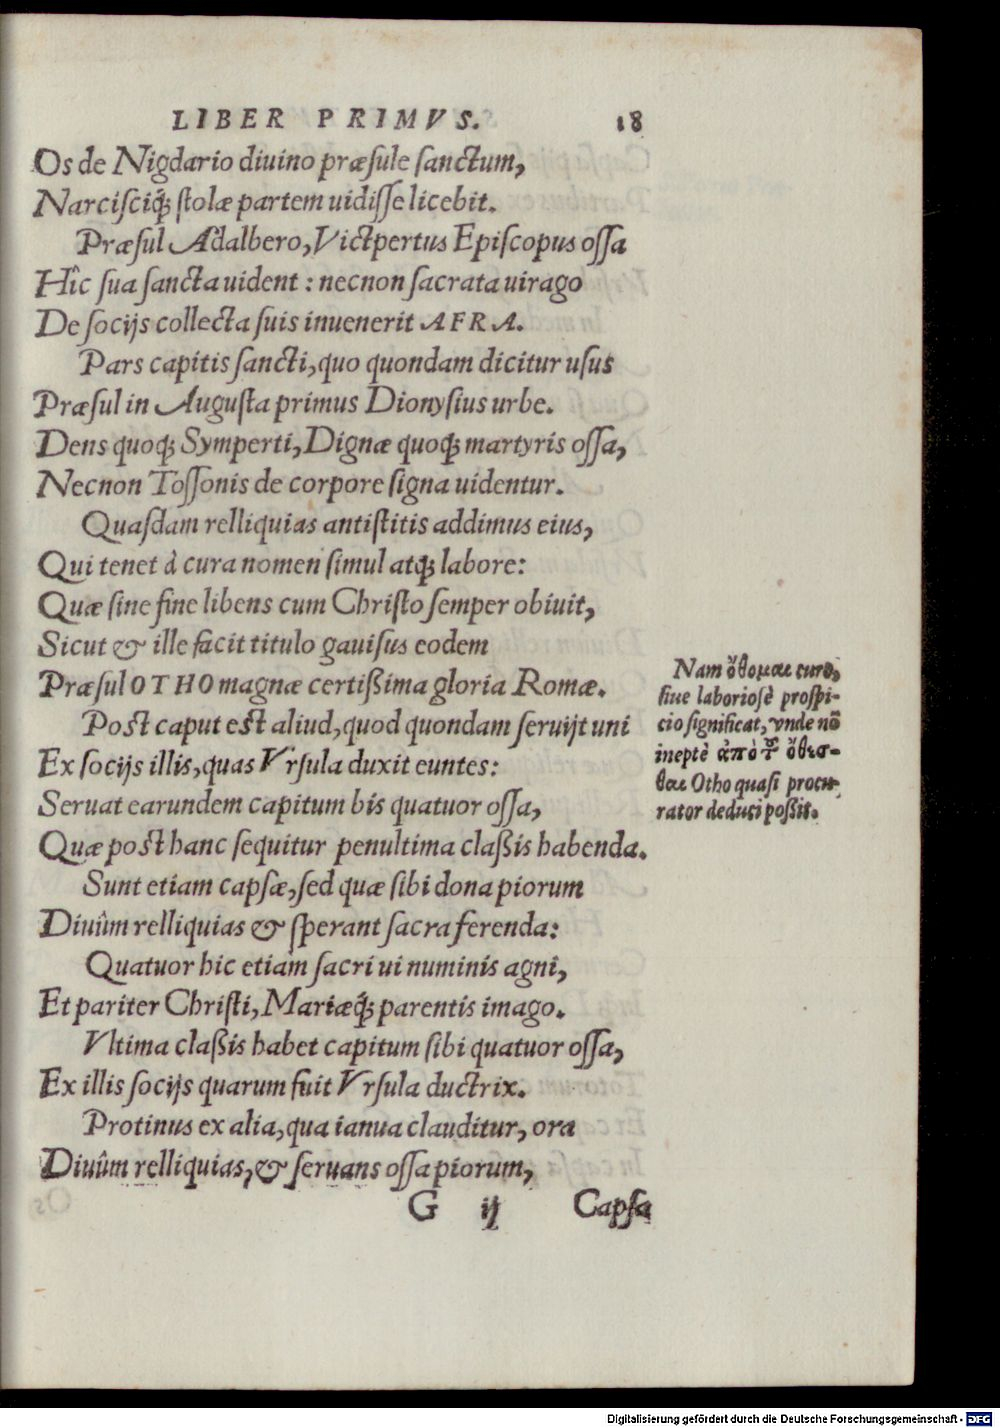 LIBER PRIMVS. 18
Os de Nigdario diuino præsule sanctum,
Narcisciq́; stolæ partem uidisse licebit.
Præsul Adalbero, Victpertus Episcopus ossa
Hîc sua sancta uident: necnon sacrata uirago
De socijs collecta suis inuenerit AFRA.
Pars capitis sancti, quo quondam dicitur usus
Præsul in Augusta primus Dionysius urbe.
Dens quoq; Symperti, Dignæ quoq; martyris ossa,
Necnon Tossonis de corpore signa uidentur.
Quasdam relliquias antistitis addimus eius,
Qui tenet à cura nomen simul atq; labore:
Quæ sine fine libens cum Christo semper obiuit,
Sicut & ille facit titulo gauisus eodem
Præsul OTHO magnæ certißima gloria Romæ.
Nam ὄθομαι curo,
siue laboriosè prospi-
cio significat, vnde nō
ineptè ἀπὸ τ͂ ὄθεσ-
θαι Otho quasi procu-
rator deduci poßit.
Post caput est aliud, quod quondam seruijt uni
Ex socijs illis, quas Vrsula duxit euntes:
Seruat earundem capitum bis quatuor ossa,
Quæ post hanc sequitur penultima claßis habenda.
Sunt etiam capsæ, sed quæ sibi dona piorum
Diuûm relliquias & sperant sacra ferenda:
Quatuor hic etiam sacri ui numinis agni,
Et pariter Christi, Mariæq́; parentis imago.
Vltima claßis habet capitum sibi quatuor ossa,
Ex illis socijs quarum fuit Vrsula ductrix.
Protinus ex alia, qua ianua clauditur, ora
Diuûm relliquias, & seruans ossa piorum,
G ij Capsa
Digitalisierung gefördert durch die Deutsche Forschungsgemeinschaft - DFG